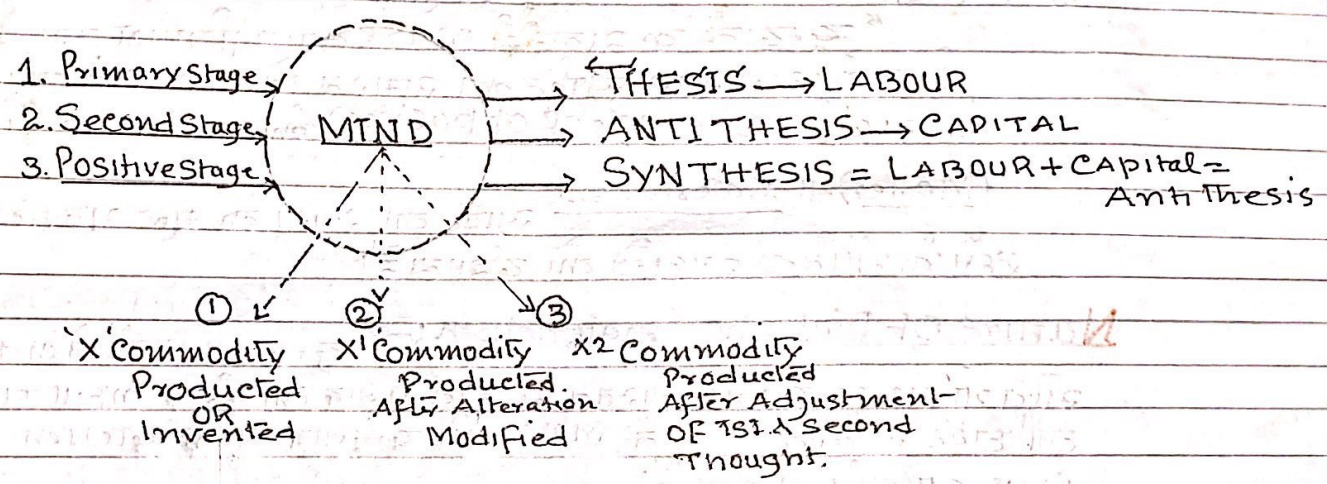 1. Primary Stage
2. Second Stage
3. Positive Stage
MIND
THESIS → LABOUR
ANTI THESIS → CAPITAL
SYNTHESIS = LABOUR + CAPital =
Anti Thesis
① ② ③
'X' Commodity
Producted
OR
Invented
X' Commodity
Producted.
After Alteration
Modified
X2 Commodity
Producted
After Adjustment
OF IST & Second
Thought.